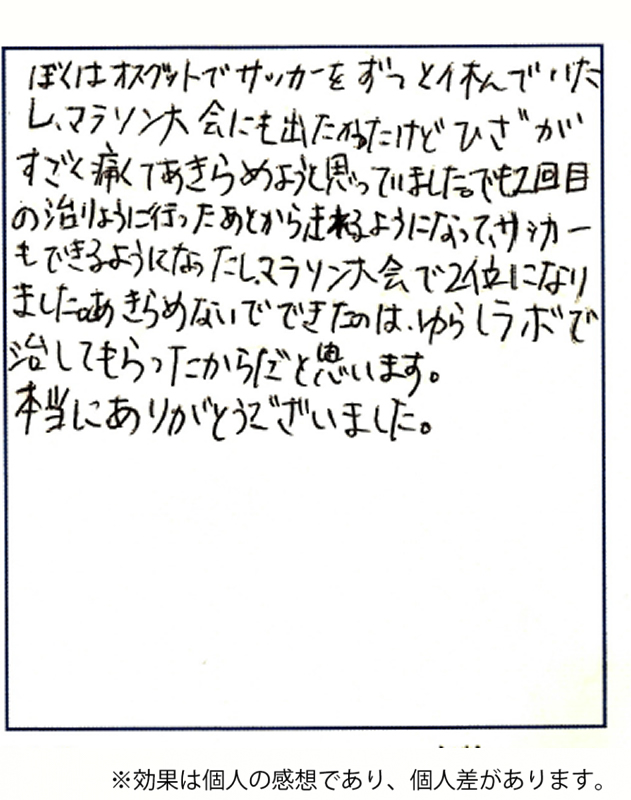 ぼくはオスグットでサッカーをずっと休んでいた
し、マラソン大会にも出たかったけどひざが
すごく痛くてあきらめようと思っていました。でも2回目
の治りょうに行ったあとから走れるようになって、サッカー
もできるようになったし、マラソン大会で2位になり
ました。あきらめないでできたのは、ゆらしラボで
治してもらったからだと思います。
本当にありがとうございました。
※効果は個人の感想であり、個人差があります。